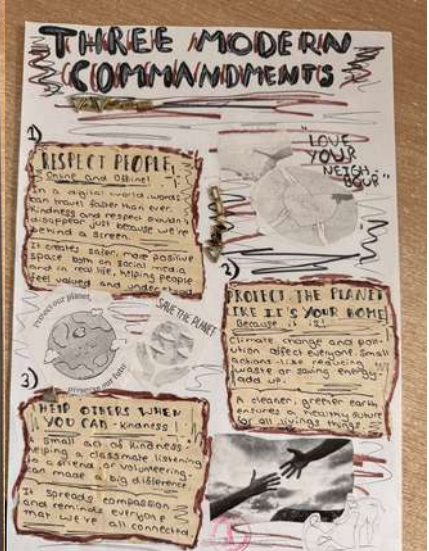 THREE MODERN
COMMANDMENTS
1)
RESPECT PEOPLE,
Online and Offline!
In a digital world, words
can travel faster than ever.
Kindness and respect shouldn't
disappear just because we're
behind a screen.
It creates safer, more positive
space both on social media
and in real life, helping people
feel valued and understood
"LOVE
YOUR
NEIGH
BOUR"
2)
PROTECT THE PLANET
LIKE IT'S YOUR HOME
Because it is!
Climate change and poll-
ution affect everyone. Small
actions like reducing
waste or saving energy
add up.
A cleaner, greener earth
ensures a healthy future
for all livings things.
Protect our planet,
preserve our future
SAVE THE PLANET
3)
HELP OTHERS WHEN
YOU CAN - Kindness!
Small act of kindness -
helping a classmate, listening
to a friend, or volunteering -
can made a big difference
It spreads compassion
and reminds everyone
that we're all connected.